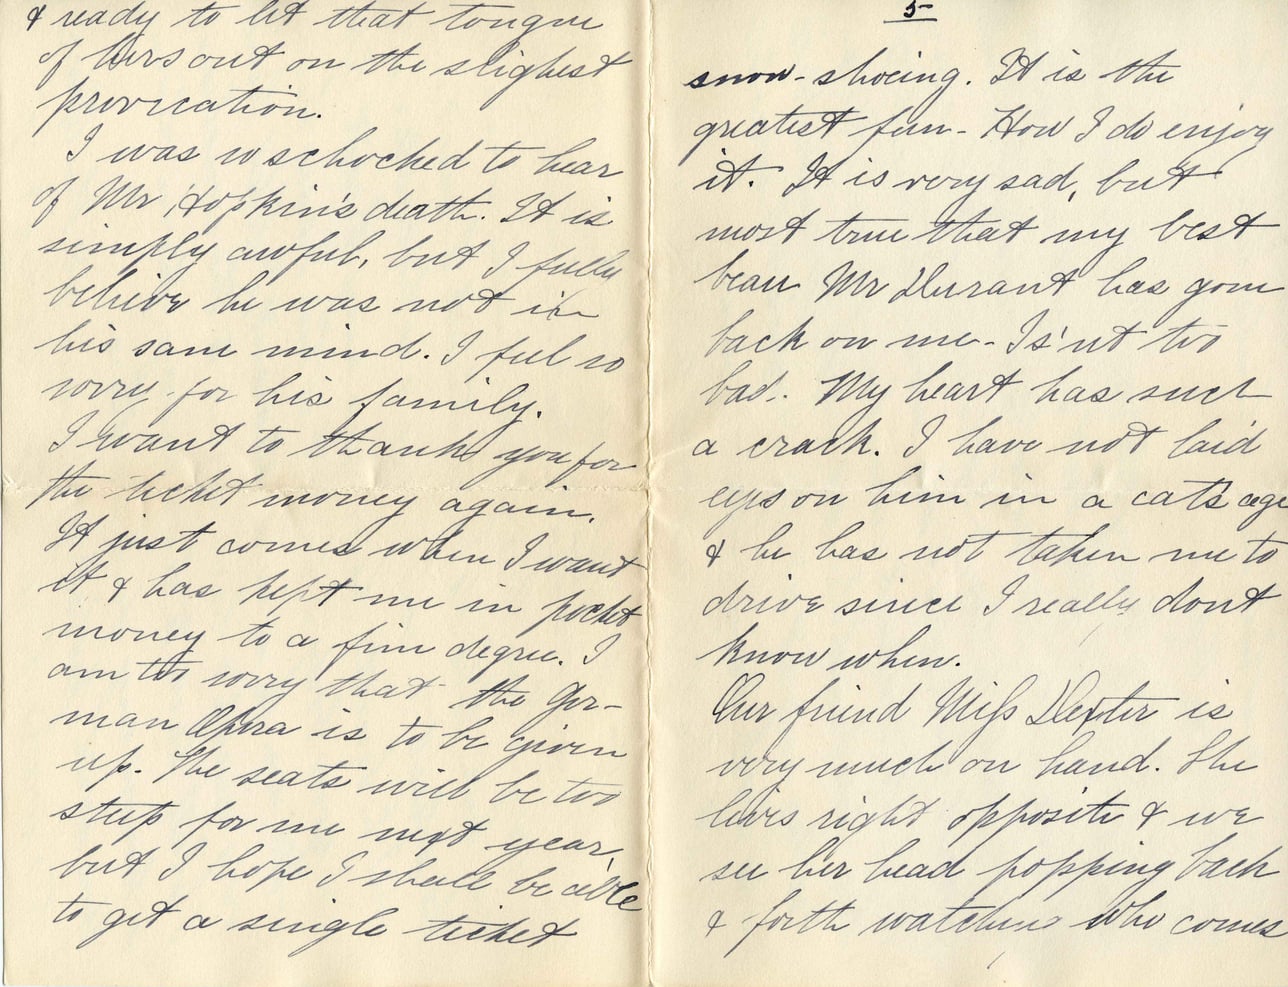 & ready to let that tongue
of hers out on the slighest
provication.
I was so schocked to hear
of Mr Hopkin's death. It is
simply awful, but I fully
believe he was not in
his sane mind. I feel so
sorry for his family.
I want to thank you for
the ticket money again.
It just comes when I want
it & has kept me in pocket
money to a fine degree. I
am too sorry that the Ger-
man Opera is to be given
up. The seats will be too
steep for me next year,
but I hope I shall be able
to get a single ticket
5
snow-shoeing. It is the
greatest fun - How I do enjoy
it. It is very sad, but
most true that my best
beau Mr Durant has gone
back on me - Is'nt too
bad. My heart has such
a crack. I have not laid
eyes on him in a cat's age
& he has not taken me to
drive since I really dont
know when.
Our friend Miss Dexter is
very much on hand. She
lives right opposite & we
see her head popping back
& forth watching who comes